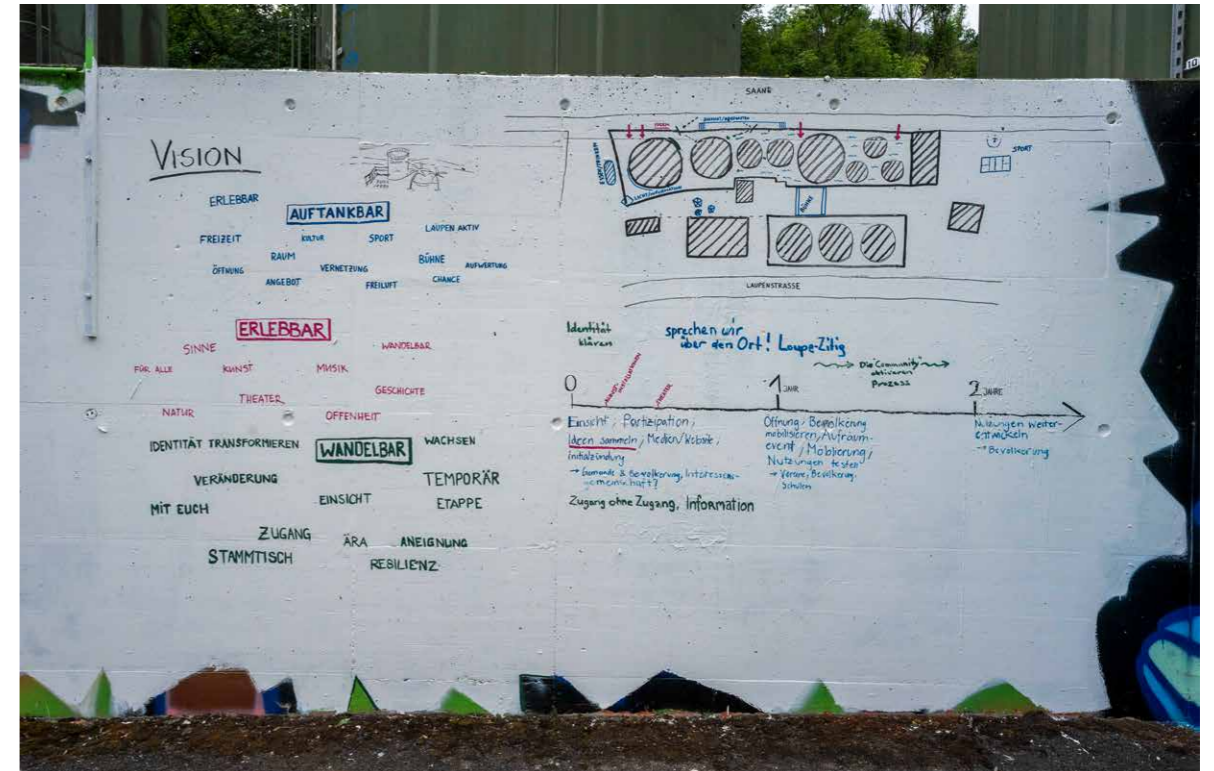 VISION
ERLEBBAR
AUFTANKBAR
FREIZEIT KULTUR SPORT LAUPEN AKTIV
RAUM BÜHNE
ÖFFNUNG VERNETZUNG AUFWERTUNG
ANGEBOT FREILUFT CHANCE
ERLEBBAR
SINNE WANDELBAR
FÜR ALLE KUNST MUSIK
THEATER GESCHICHTE
NATUR OFFENHEIT
IDENTITÄT TRANSFORMIEREN WANDELBAR WACHSEN
VERÄNDERUNG TEMPORÄR
MIT EUCH EINSICHT ETAPPE
ZUGANG ÄRA ANEIGNUNG
STAMMTISCH RESILIENZ
SAANE
SPORT
BÜHNE
LAUPENSTRASSE
Identität
klären
sprechen wir
über den Ort! Loupe-Zitig
Die Community
aktivieren
Prozess
0
THEATER
1 JAHR
2 JAHRE
Einsicht, Partizipation,
Ideen sammeln, Medien/Website,
Initialzündung
→ Gemeinde & Bevölkerung, Interessen-
gemeinschaft?
Zugang ohne Zugang, Information
Öffnung, Bevölkerung
mobilisieren, Aufräum-
event, Möblierung,
Nutzungen testen
→ Vereine, Bevölkerung,
Schulen
Nutzungen weiter-
entwickeln
→ Bevölkerung
10